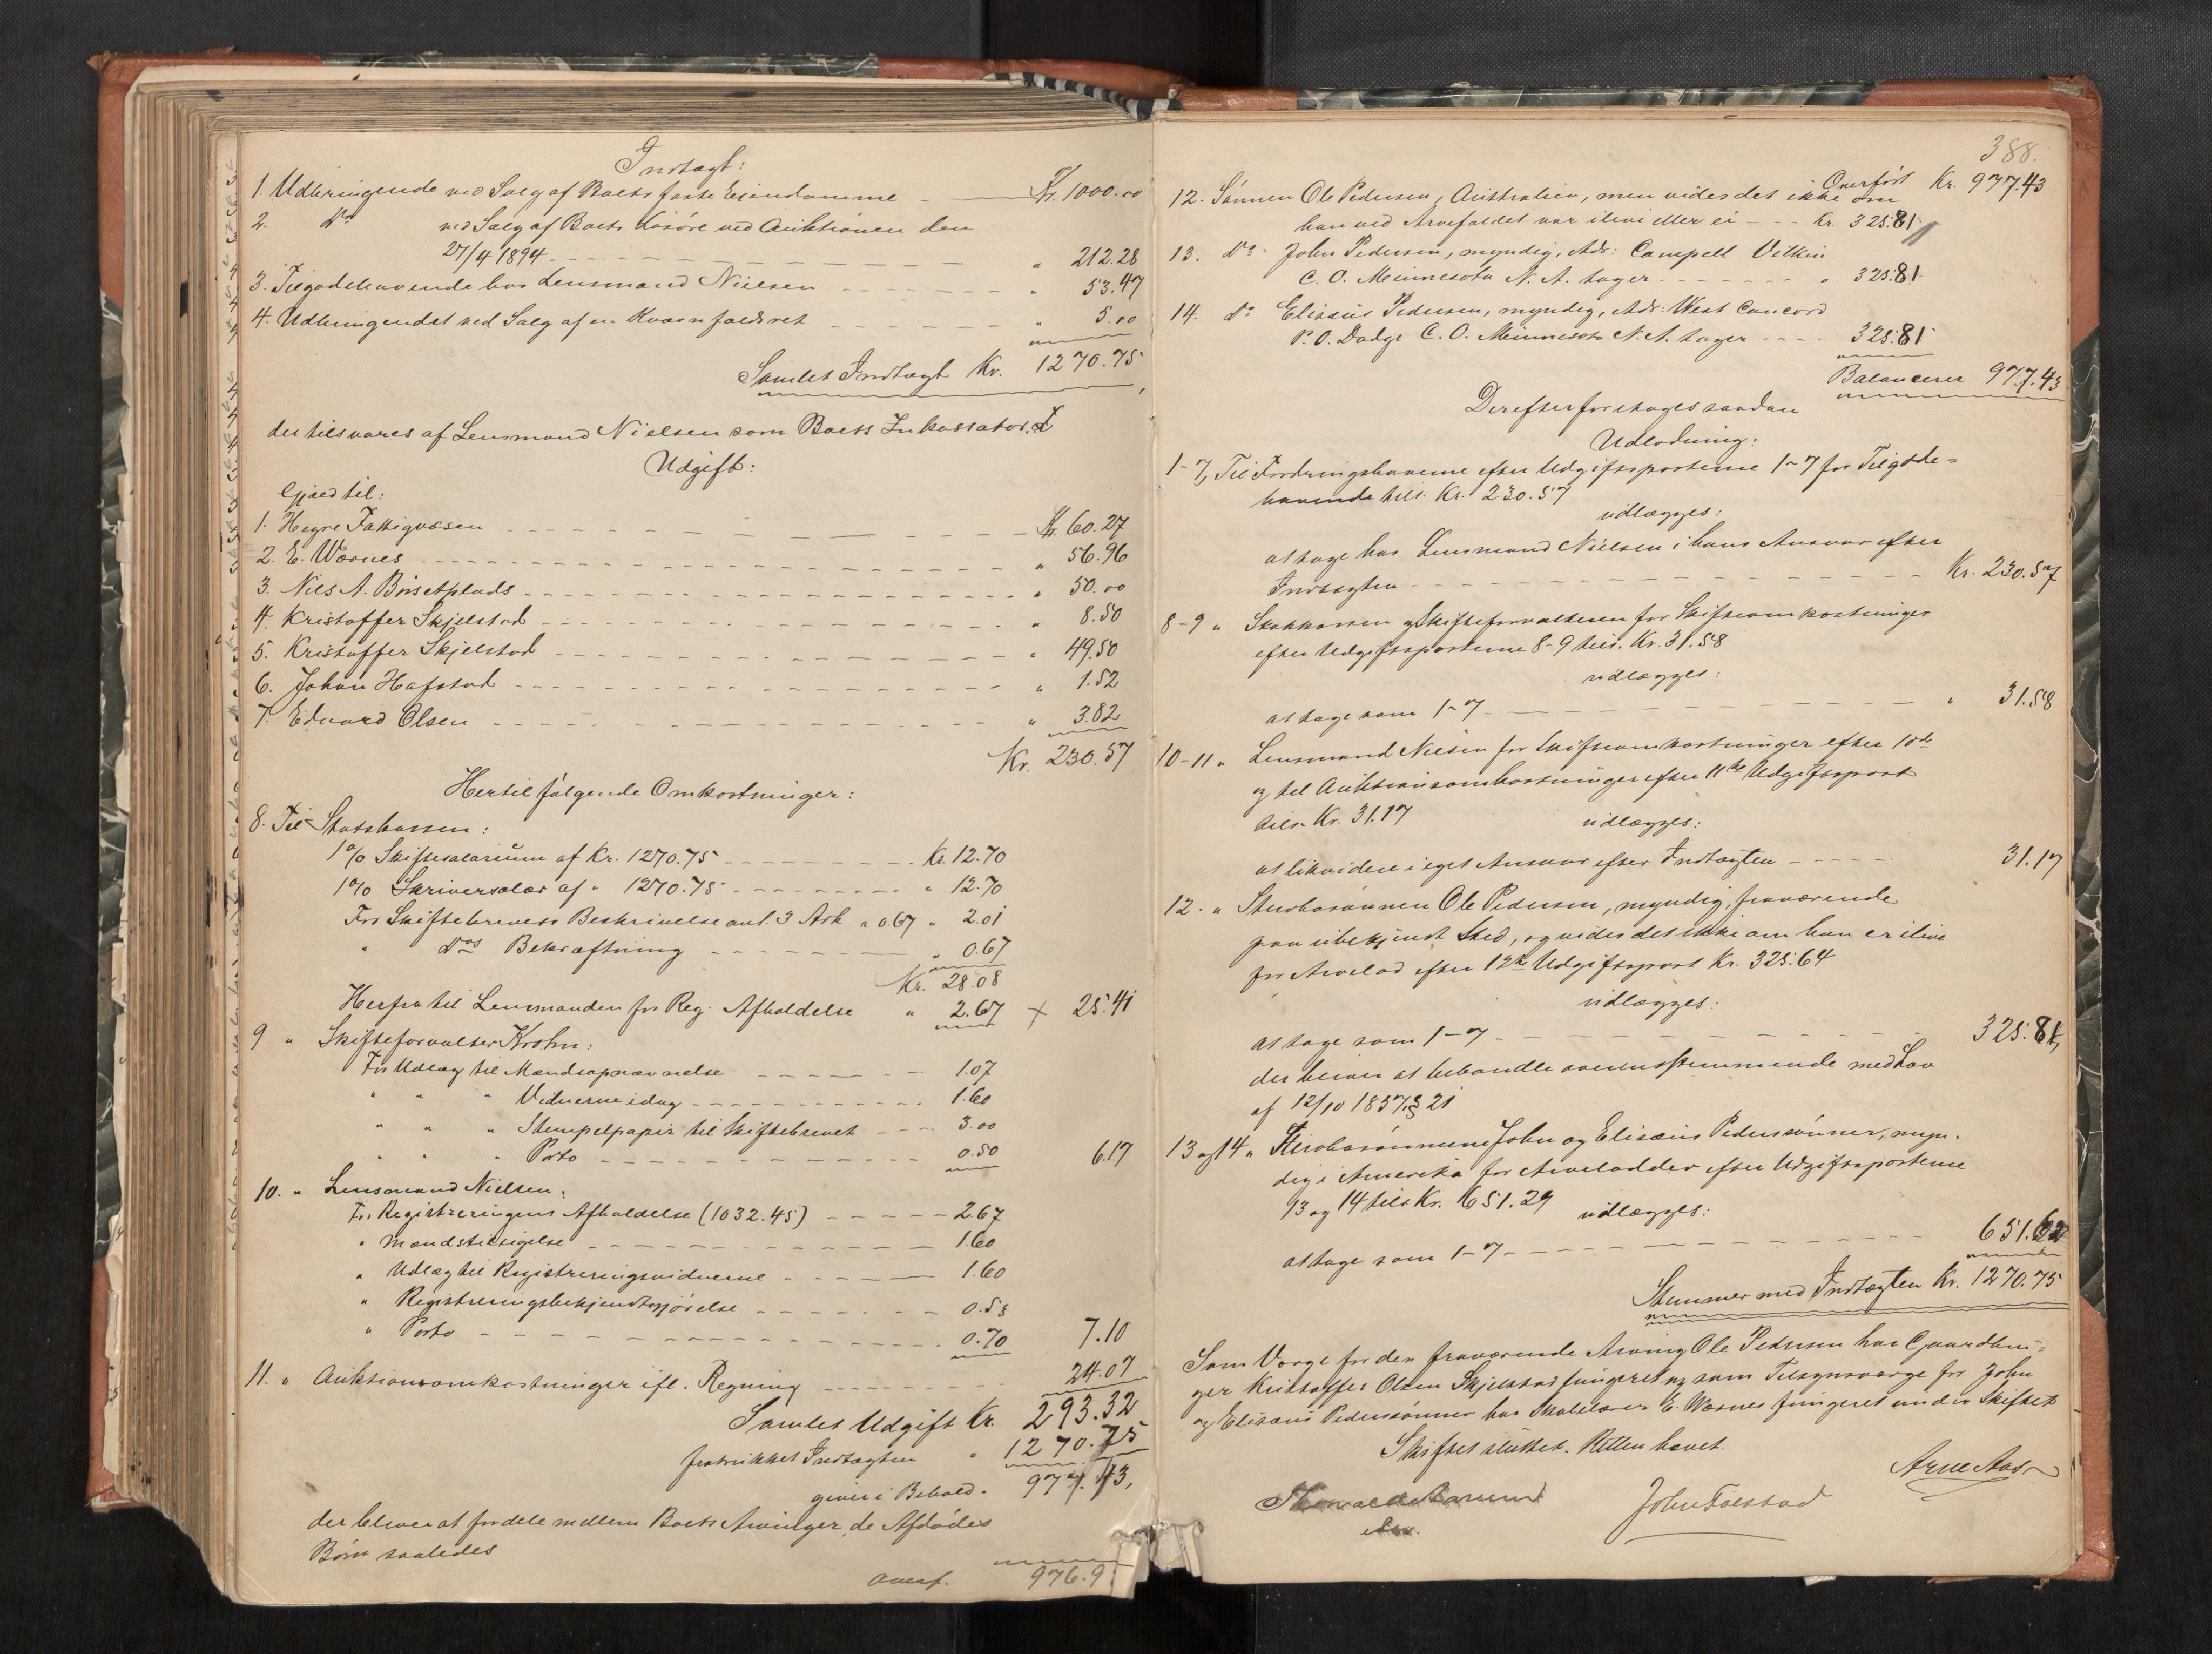 Indtægt:
1. Udbringende ved Salg af Boets faste Eiendomme - Kr. 1000.00
2. Do ved Salg af Boets Løsøre ved Auktionen den
27/4 1894 - " 212.28
3. Tilgodehavende hos Lensmand Nielsen - " 53.47
4. Udbringendet ved Salg af en Kværnfaldsret - " 5.00
Samlet Indtægt Kr. 1270.75
der tilsvares af Lensmand Nielsen som Boets Inkassator.
Udgift:
Gjæld til:
1. Hegre Fattigvæsen - Kr. 60.27
2. E. Wærnes - " 56.96
3. Nils A. Børsetplads - " 50.00
4. Kristoffer Skjelstad - " 8.50
5. Kristoffer Skjelstad - " 49.50
6. Johan Hafstad - " 1.52
7. Edvard Olsen - " 3.82
Kr. 230.57
Hertil følgende Omkostninger:
8. Til Statskassen:
1% Skiftesalarium af Kr. 1270.75 - Kr. 12.70
1% Skriversalær af " 1270.75 - " 12.70
For Skiftebrevets Beskrivelse ant. 3 Ark a 0.67 " 2.01
" Dos Bekræftning - " 0.67
Kr. 28.08
Herfra til Lensmanden for Reg. Afholdelse " 2.67 + 25.41
9 " Skifteforvalter Krohn:
For Udlæg til Mændsopnævnelse - 1.07
" " " Vidnerne idag - 1.60
" " " Stempelpapir til Skiftebrevet - 3.00
" " " Porto - 0.50 6.17
10. " Lensmand Nielsen:
For Registreringens Afholdelse (1032.45) - 2.67
" Mændstilsigelse - 1.60
" Udlæg til Registreringsvidnerne - 1.60
" Registreringsbekjendtgjørelse - 0.53
" Porto - 0.70 7.10
11. " Auktionsomkostninger ifl. Regning - 24.07
Samlet Udgift Kr. 293.32
fratrukket Indtægten " 1270.75
giver i Behold " 977.43,
der bliver at fordele mellem Boets Arvinger, de Afdødes
Børn saaledes
Overf. 976.9
388.
Overført Kr. 977.43
12. Sønnen Ole Pedersen, Australien, men vides det ikke om
han ved Arvefaldet var ilive eller ei - Kr. 325.81
13. Do John Pedersen, myndig, Adr: Campell Vilkin
C. O. Minnesota N. A. tager - " 325.81
14. Do Elisæus Pedersen, myndig, Adr: West Concord
P. O. Dodge C. O. Minnesota N. A. tager - 325.81
Balancerer 977.43
Derefter foretages saadan
Udlodning:
1-7, Til Fordringshaverne efter Udgiftsposterne 1-7 for Tilgode-
havende tils. Kr. 230.57
udlægges:
at tage hos Lensmand Nielsen i hans Ansvar efter
Indtægten - Kr. 230.57
8-9 " Statskassen og Skifteforvalteren for Skifteomkostninger
efter Udgiftsposterne 8-9 tils. Kr. 31.58
udlægges:
at tage som 1-7 - " 31.58
10-11 " Lensmand Nielsen for Skifteomkostninger efter 10de
og til Auktionsomkostninger efter 11te Udgiftspost
tils. Kr. 31.17 udlægges:
at likvidere i eget Ansvar efter Indtægten - 31.17
12. " Stervbosønnen Ole Pedersen, myndig, fraværende
paa ubekjendt Sted, og vides det ikke om han er ilive
for Arvelod efter 12te Udgiftspost Kr. 325.64
udlægges:
at tage som 1-7 - 325.81,
der bliver at behandle overensstemmende med Lov
af 12/10 1857 § 21
13 og 14 " Stervbosønnerne John og Elisæus Pedersønner, myn-
dig i Amerika for Arvelodder efter Udgiftsposterne
13 og 14 tils. Kr. 651.29 udlægges:
at tage som 1-7 - 651.62
Stemmer med Indtægten Kr. 1270.75
Som Værge for den fraværende Arving Ole Pedersen har Gaardbru-
ger Kristoffer Olsen Skjelstad fungeret og som Tilsynsværge for John
og Elisæus Pedersønner har Skolelærer E. Wærnes fungeret under Skiftet
Skiftet sluttet. Retten hævet.
Arne Aas
John Følstad